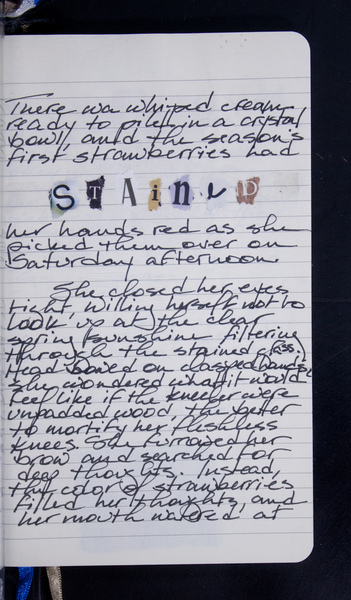 There wa whipped cream
ready to pile in a crystal
bowl, and the season's
first strawberries had
STAiNeD
her hands red as she
picked them over on
Saturday afternoon.
She closed her eyes
tight, willing herself not to
look up at the clear
spring sunshine filtering
through the stained glass
Head bowed on clasped hands,
she wondered what it would
feel like if the kneeler were
unpadded wood, the better
to mortify her fleshless
knees. She furrowed her
brow and searched for
deep thoughts. Instead,
the color of strawberries
filled her thoughts, and
her mouth watered at